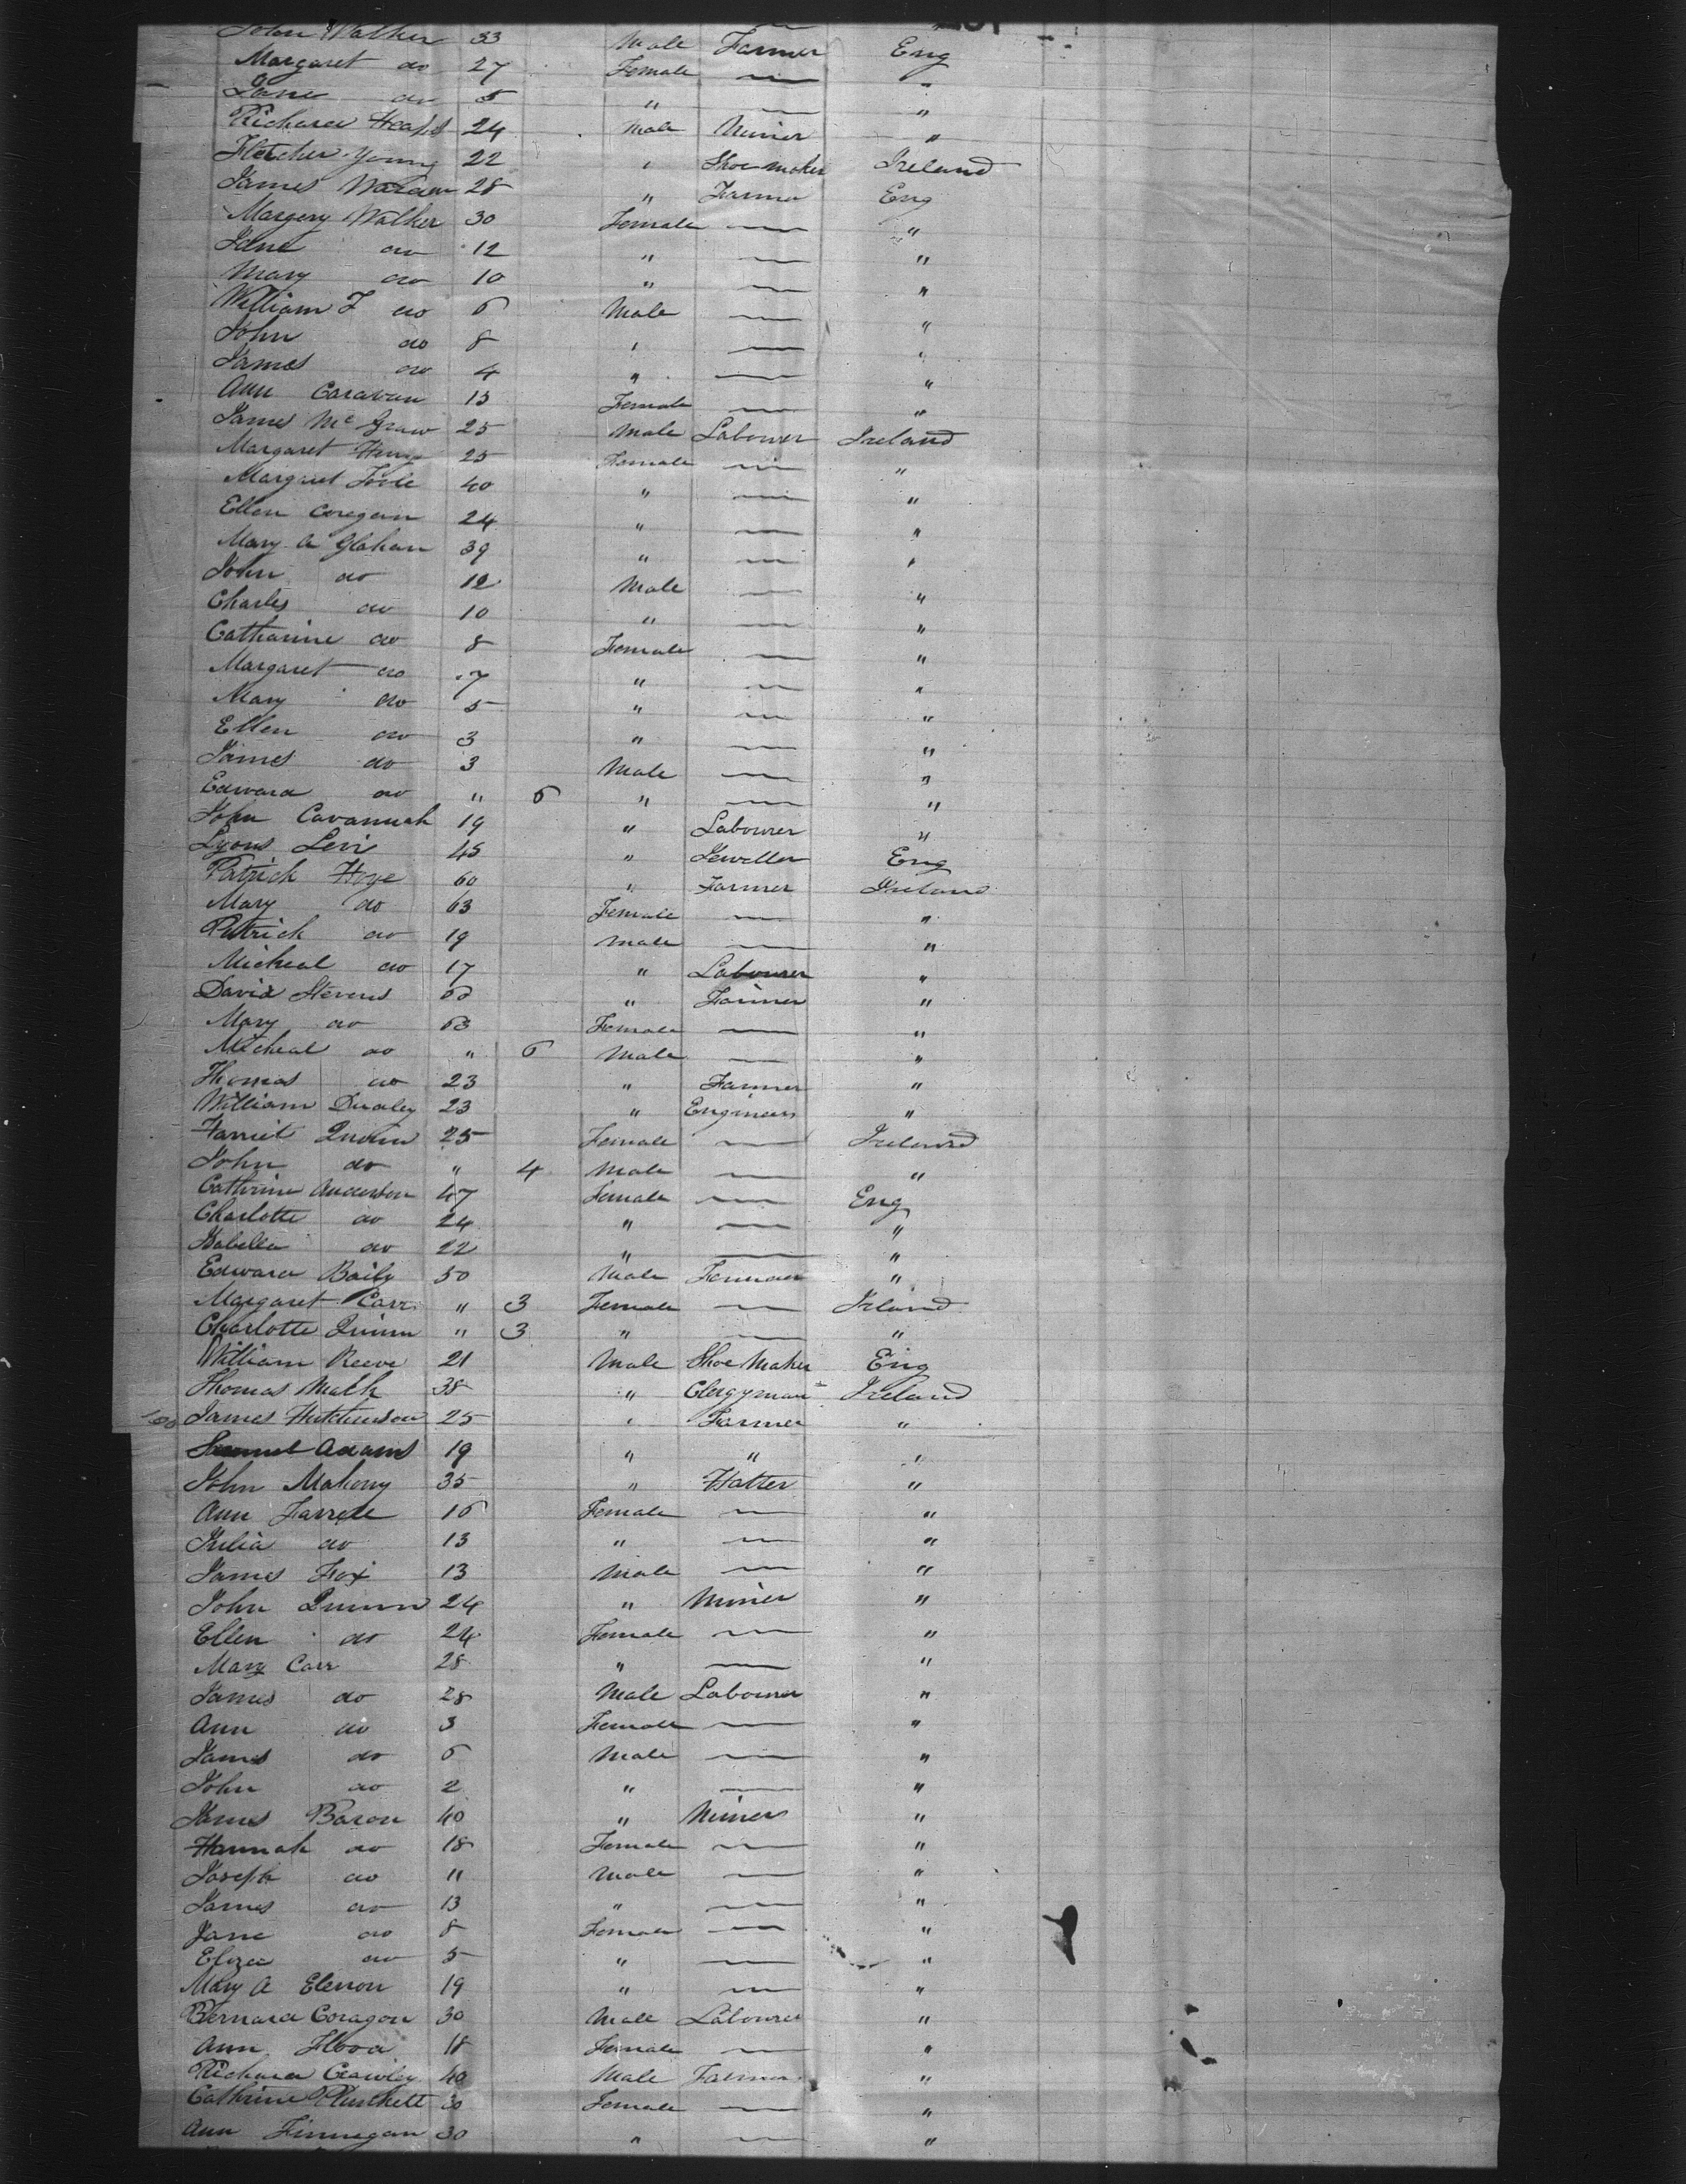 John Walker 33 Male Farmer Eng
Margaret do 27 Female — "
Jane do 5 " — "
Richard Heaps 24 Male Miner "
Fletcher Young 22 " Shoe maker Ireland
James 28 " Farmer Eng
Margery Walker 30 Female — "
Jane do 12 " — "
Mary do 10 " — "
William J do 6 Male — "
John do 8 " — "
James do 4 " — "
Ann Caravan 13 Female — "
James Mc Graw 25 Male Labourer Ireland
Margaret Henry 25 Female — "
Margaret 40 " — "
Ellen Coregan 24 " — "
Mary A Glahan 39 " — "
John do 12 Male — "
Charles do 10 " — "
Catharine do 8 Female — "
Margaret do 7 " — "
Mary do 5 " — "
Ellen do 3 " — "
James do 3 Male — "
Edward do " 6 " — "
John Cavannah 19 " Labourer "
Lyons Levi 45 " Jeweller Eng
Patrick Hoye 60 " Farmer Ireland
Mary do 63 Female — "
Patrick do 19 Male — "
Micheal do 17 " Labourer "
David Stevens 60 " Farmer "
Mary do 63 Female — "
Micheal do " 6 Male — "
Thomas do 23 " Farmer "
William Dualey 23 " Engineer "
Harriet Quinn 25 Female — Ireland
John do " 4 Male — "
Cathrine Anderson 47 Female — Eng
Charlotte do 24 " — "
Isabella do 22 " — "
Edward Baily 50 Male Farmer "
Margaret Carr " 3 Female — Ireland
Charlotte Quinn " 3 " — "
William Reeve 21 Male Shoe Maker Eng
Thomas Walk 38 " Clergyman Ireland
100 James Hutchinson 25 " Farmer "
Samuel Adams 19 " " "
John Mahony 35 " Hatter "
Ann Farrell 16 Female — "
Julia do 13 " — "
James Fox 13 Male — "
John Quinn 24 " Miner "
Ellen do 24 Female — "
Mary Carr 28 " — "
James do 28 Male Labourer "
Ann do 3 Female — "
James do 6 Male — "
John do 2 " — "
James Bacon 40 " Miner "
Hannah do 18 Female — "
Joseph do 11 Male — "
James do 13 " — "
Jane do 8 Female — "
Eliza do 5 " — "
Mary A Elenon 19 " — "
Bernard Coragon 30 Male Labourer "
Ann Flood 18 Female — "
Richard Crawley 40 Male Farmer "
Cathrine Plunkett 30 Female — "
Ann Finnegan 30 " — "